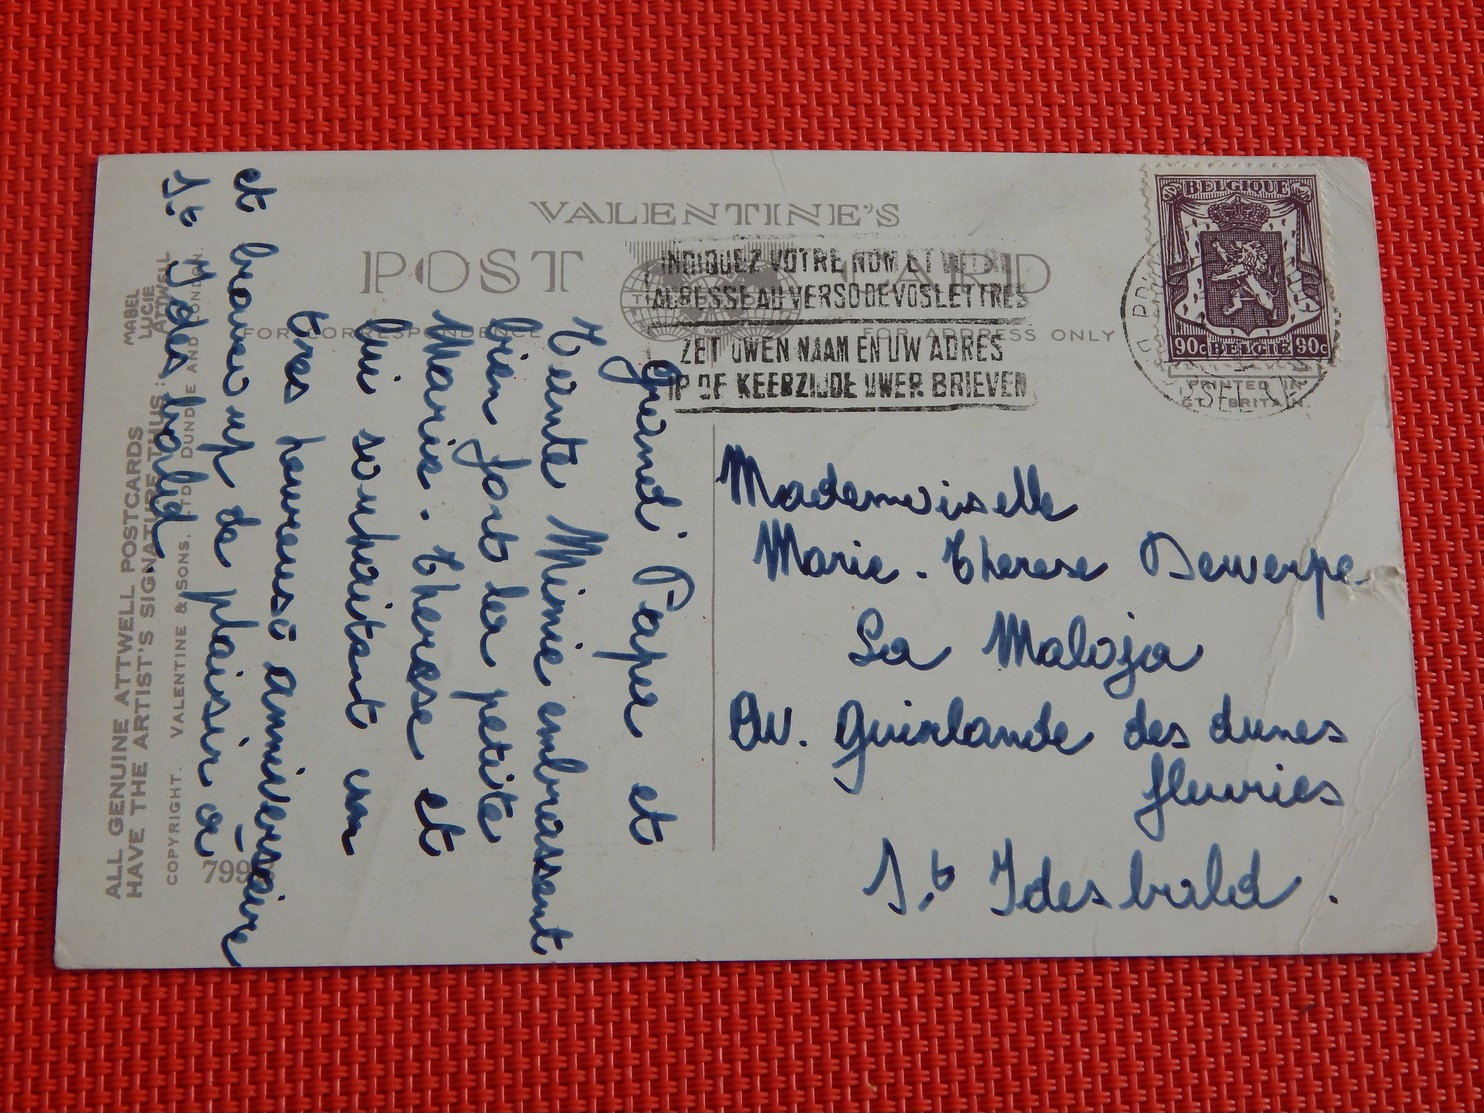 VALENTINE'S
POST CARD
FOR CORRESPONDENCE
FOR ADDRESS ONLY
INDIQUEZ VOTRE NOM ET VOTRE
ADRESSE AU VERSO DE VOS LETTRES
ZET UWEN NAAM EN UW ADRES
OP DE KEERZIJDE UWER BRIEVEN
BELGIQUE
90c BELGIE 90c
PRINTED IN
GT. BRITAIN.
Grand' Papa et
Tante Mimie embrassent
bien fort la petite
Marie-Therese et
lui souhaitent un
tres heureuse anniversaire
et beaucoup de plaisir a
St Idesbald
Mademoiselle
Marie-Therese Dewerpe
La Maloja
Av. Guirlande des dunes
fleuries
St Idesbald.
ALL GENUINE ATTWELL POSTCARDS
HAVE THE ARTIST'S SIGNATURE THUS:
MABEL
LUCIE
ATTWELL
COPYRIGHT. VALENTINE & SONS, LTD. DUNDEE AND LONDON.
799